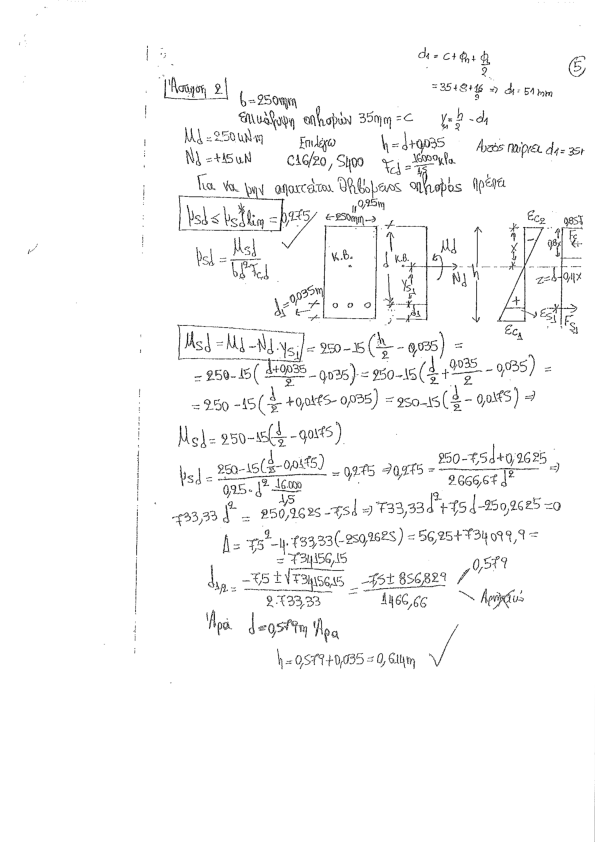 d1 = c + Φh + Φ/2
= 35+8+16/2 ⇒ d1 = 51mm
5
Άσκηση 2
b=250mm
επικάλυψη οπλισμών 35mm = c
ys1 = h/2 - d1
Md=250kNm
Επιλέγω
h=d+0,035
Αυτός παίρνει d1=35
Nd=+15kN
C16/20, S400
fcd = 16000/1,5 kPa
Για να μην απαιτείται θλιβόμενος οπλισμός πρέπει
μsd ≤ μsd*lim = 0,275
0,25m
250mm
μsd = Msd/bd²fcd
κ.β.
κ.β.
d
ys1
d1
Md
Nd
h
εc2
x
εs1
εc1
Fc
Fs1
d1=0,035m
Msd = Md - Nd·ys1 = 250-15(h/2 - 0,035) =
= 250-15((d+0,035)/2 - 0,035) = 250-15(d/2 + 0,035/2 - 0,035) =
= 250-15(d/2 + 0,0175 - 0,035) = 250-15(d/2 - 0,0175) ⇒
Msd = 250-15(d/2 - 0,0175)
μsd = (250-15(d/2 - 0,0175))/(0,25·d² 16.000/1,5) = 0,275 ⇒ 0,275 = (250-7,5d+0,2625)/(2666,67d²) ⇒
733,33d² = 250,2625-7,5d ⇒ 733,33d²+7,5d-250,2625=0
Δ = 7,5²-4·733,33(-250,2625) = 56,25+734099,9 =
= 734156,15
d1,2 = (-7,5 ± √734156,15)/(2·733,33) = (-7,5 ± 856,829)/1466,66
0,579
Αρνητικός
Άρα d=0,579m Άρα
h=0,579+0,035=0,614m